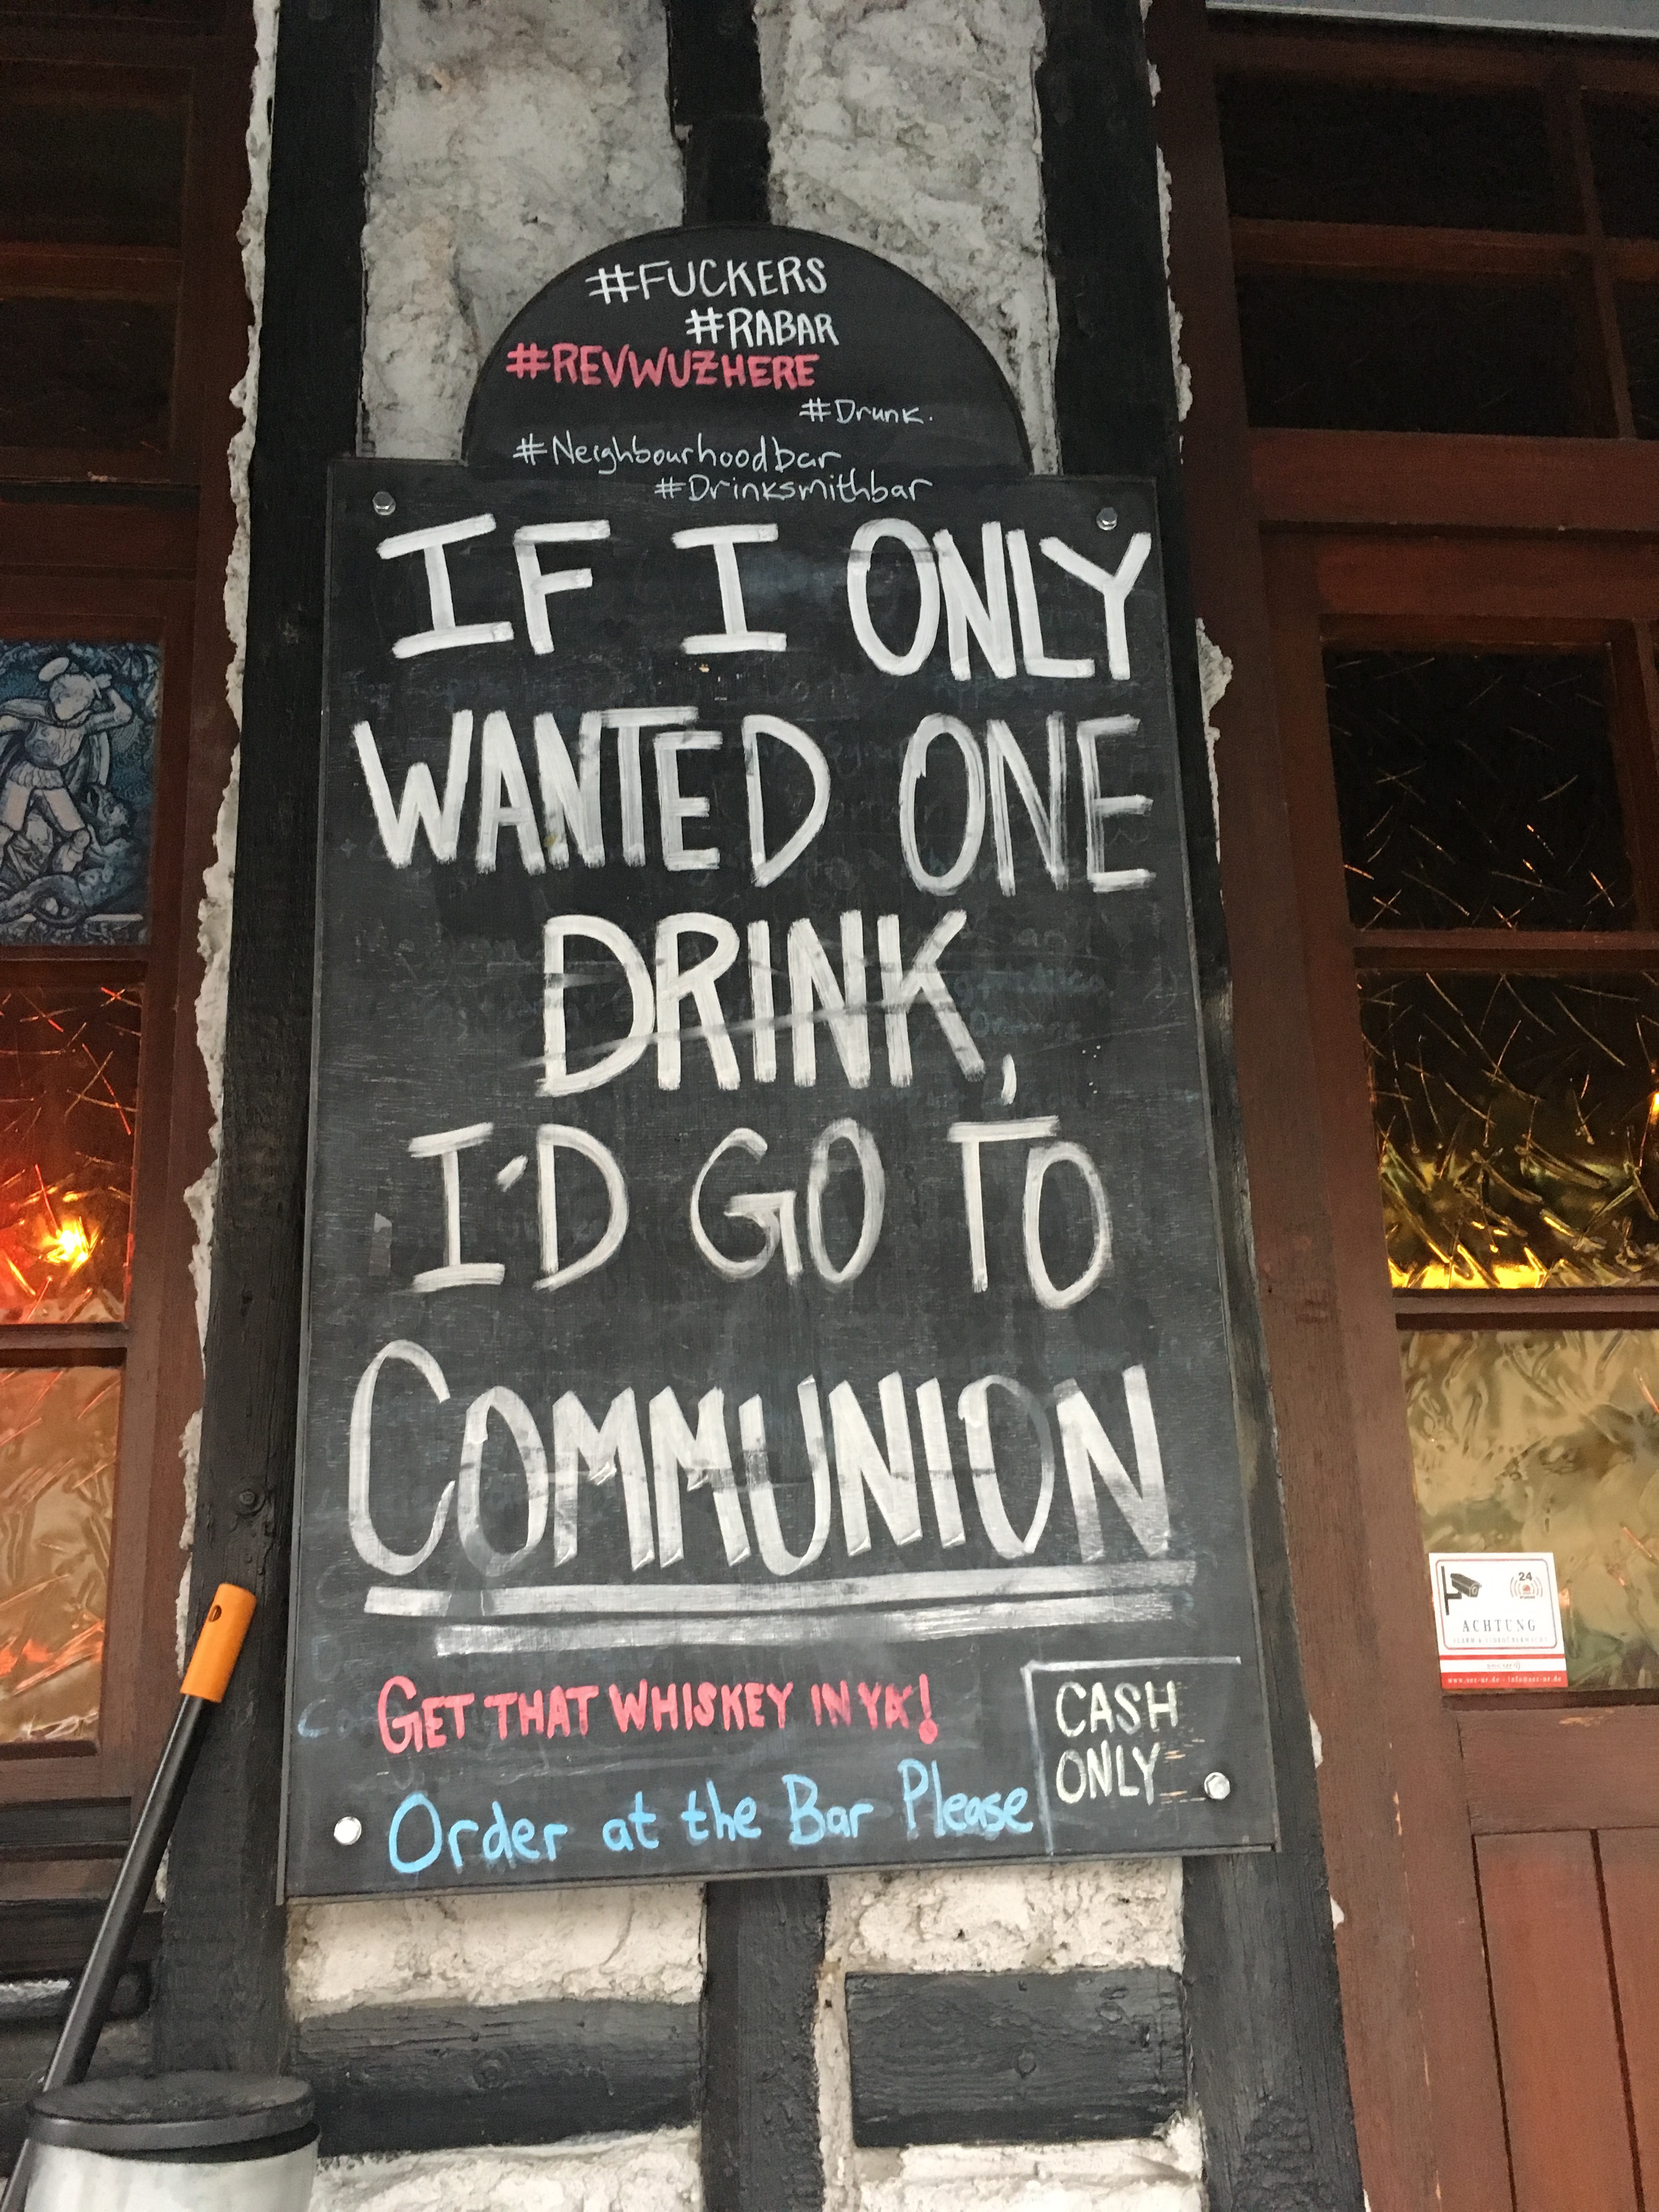 #FUCKERS
#RABAR
#REVWUZHERE
#Drunk.
#Neighbourhoodbar
#Drinksmithbar
IF I ONLY
WANTED ONE
DRINK,
I'D GO TO
COMMUNION
GET THAT WHISKEY IN YA!
CASH
ONLY
Order at the Bar Please
24
ACHTUNG